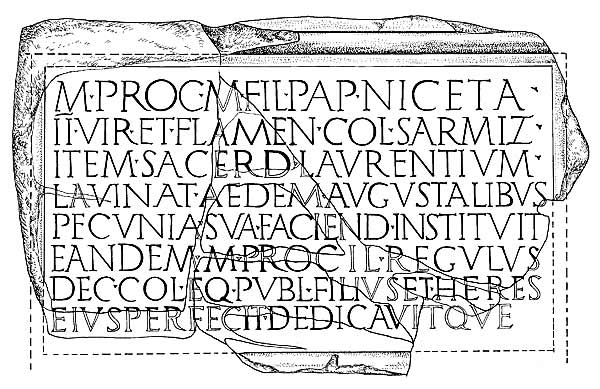 M·PROC·M·FIL·PAP·NICETA
II·VIR·ET·FLAMEN·COL·SARMIZ·
ITEM·SACERD·LAVRENTIVM·
LAVINAT·AEDEM·AVGVSTALIBVS
PECVNIA·SVA·FACIEND·INSTITVIT
EANDEM·M·PROC·FIL·REGVLVS
DEC·COL·EQ·PVBL·FILIVS·ET·HERES
EIVS·PERFECIT·DEDICAVITQVE